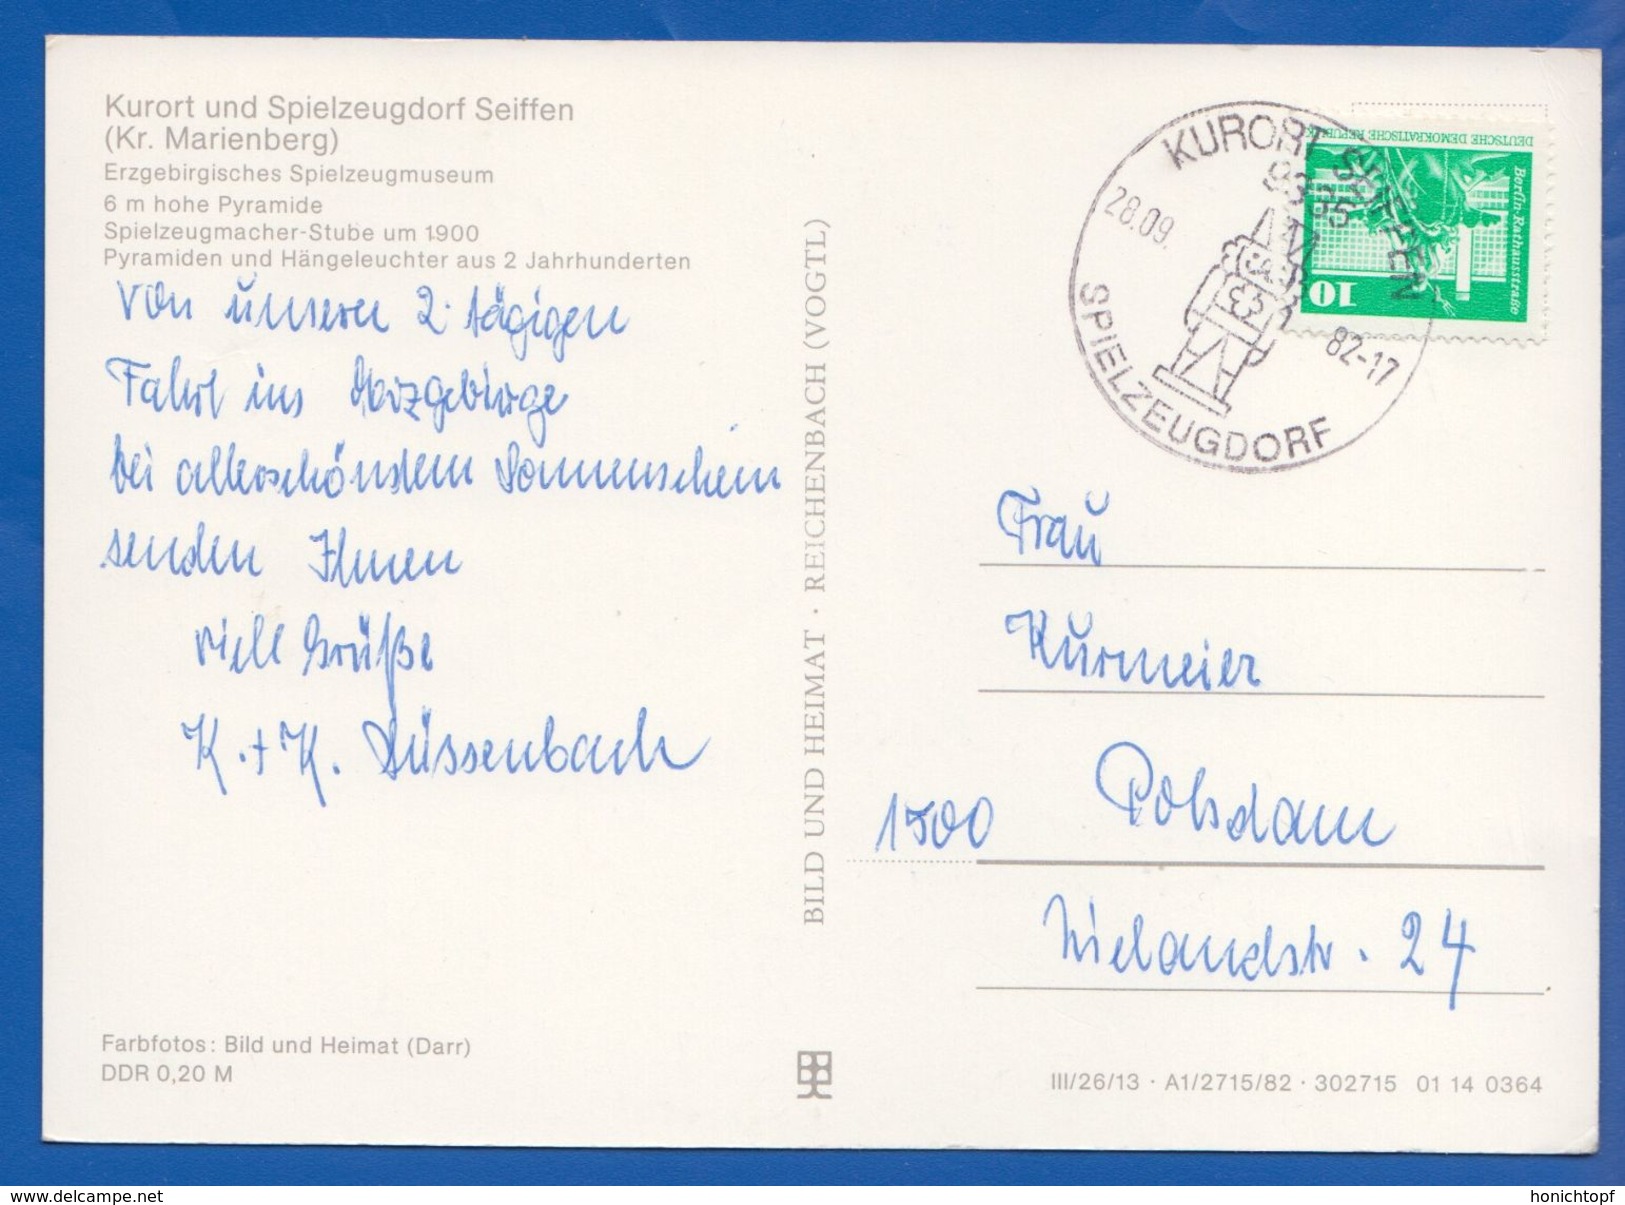 Kurort und Spielzeugdorf Seiffen
(Kr. Marienberg)
Erzgebirgisches Spielzeugmuseum
6 m hohe Pyramide
Spielzeugmacher-Stube um 1900
Pyramiden und Hängeleuchter aus 2 Jahrhunderten
Von unserer 2. tägigen
Fahrt ins Erzgebirge
bei allerschönstem Sonnenschein
senden Ihnen
viele Grüße
K. + K. Süssenbach
Farbfotos: Bild und Heimat (Darr)
DDR 0,20 M
BILD UND HEIMAT · REICHENBACH (VOGTL)
KURORT SEIFFEN
9335
28.09.
82-17
SPIELZEUGDORF
DEUTSCHE DEMOKRATISCHE REPUBLIK
Berlin-Rathausstraße
10
Frau
Kurmeier
1500 Potsdam
Wielandstr. 24
III/26/13 · A1/2715/82 · 302715 01 14 0364
www.delcampe.net
honichtopf